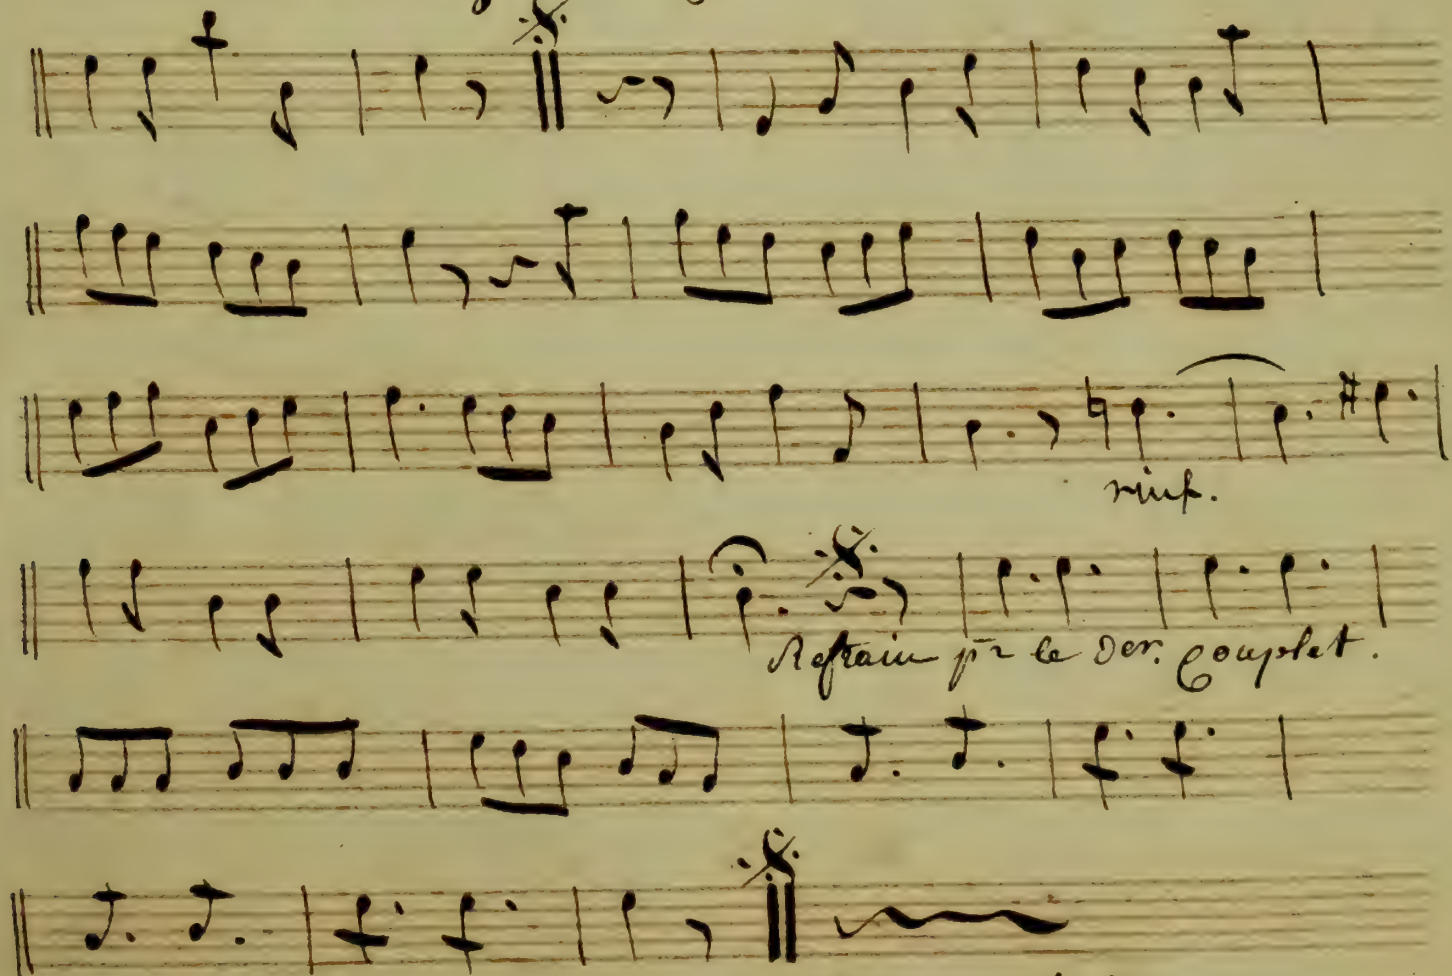 rinf.
Refrain pr le Der. Couplet.